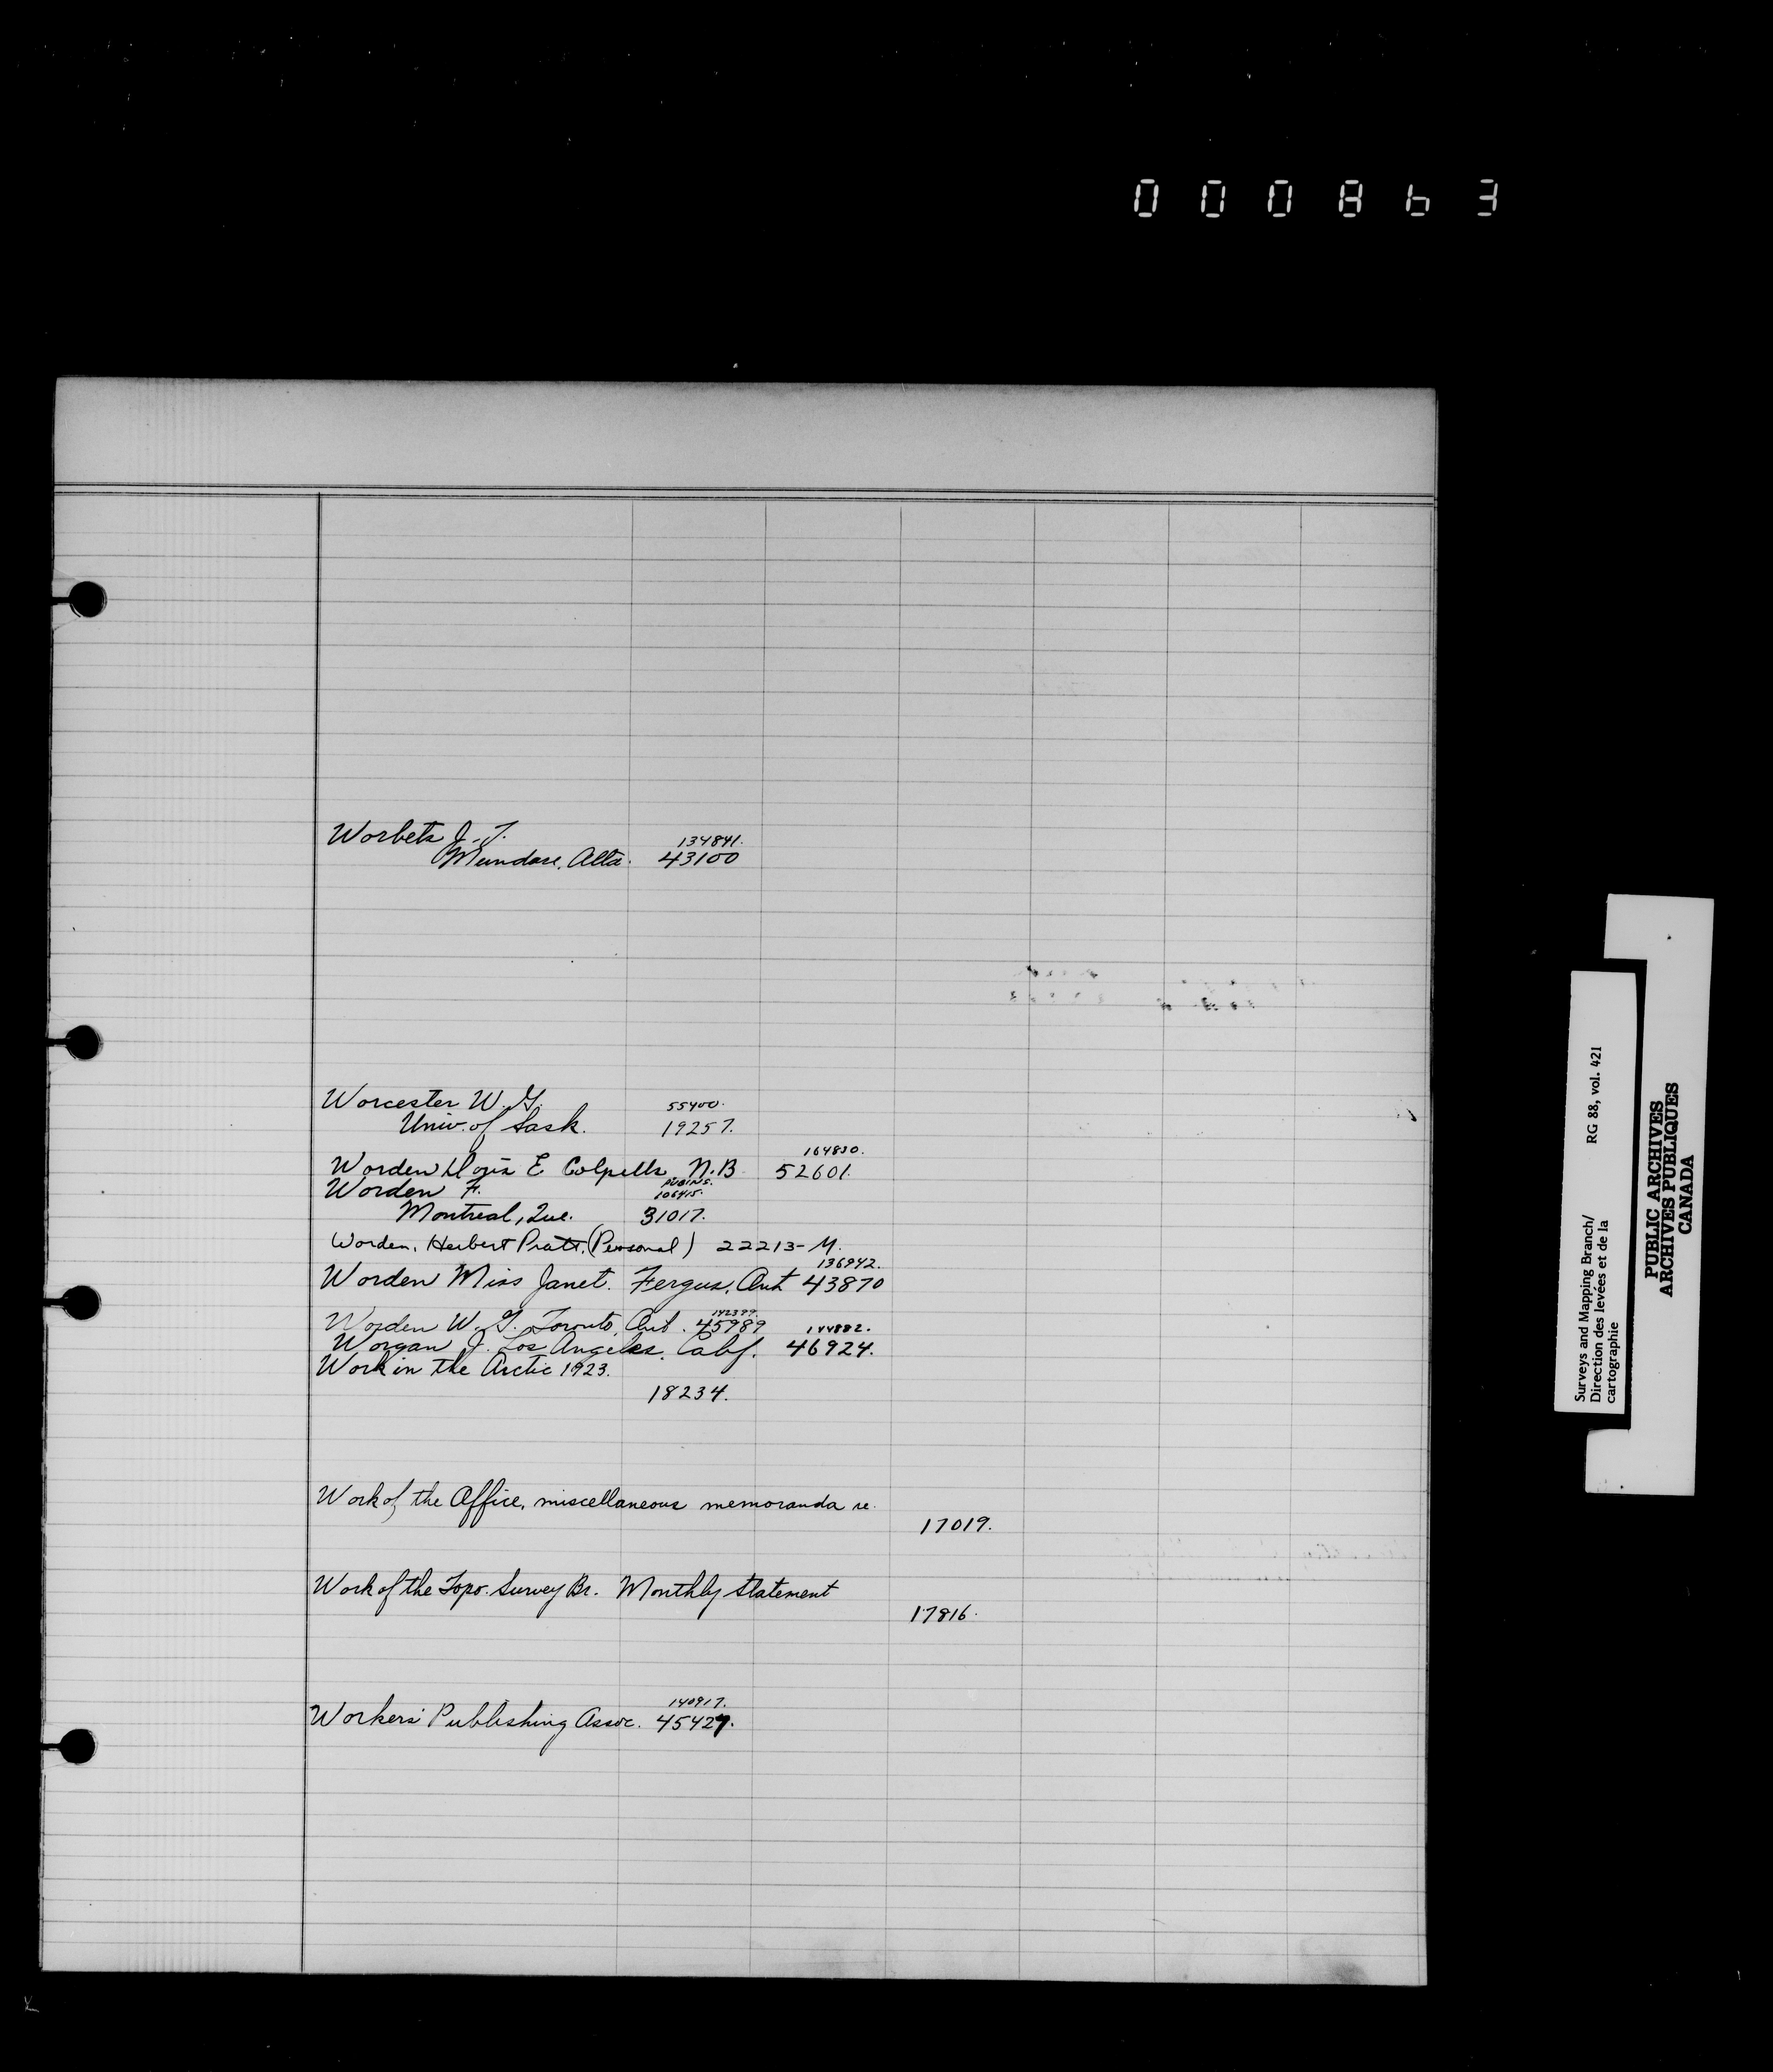 000863
Worbets J. T. 134841.
Mundare, Alta. 43100
Worcester W. G. 55400.
Univ. of Sask. 19257.
164830.
Worden E N.B. 52601.
Worden F. 106415.
Montreal, Que. 31017.
Worden, Herbert Pratt. (Personal) 22213-M.
136942.
Worden Miss Janet. Fergus, Ont 43870
142399.
Worden W. G. Toronto, Ont. 45989 144882.
Worgan J. Los Angeles, Calif. 46924.
Work in the Arctic 1923.
18234.
Work of the Office, miscellaneous memoranda re.
17019.
Work of the Topo. Survey Br. Monthly Statement
17816.
140917.
Workers' Publishing Assoc. 45427.
Surveys and Mapping Branch/ RG 88, vol. 421
Direction des levées et de la
cartographie
PUBLIC ARCHIVES
ARCHIVES PUBLIQUES
CANADA